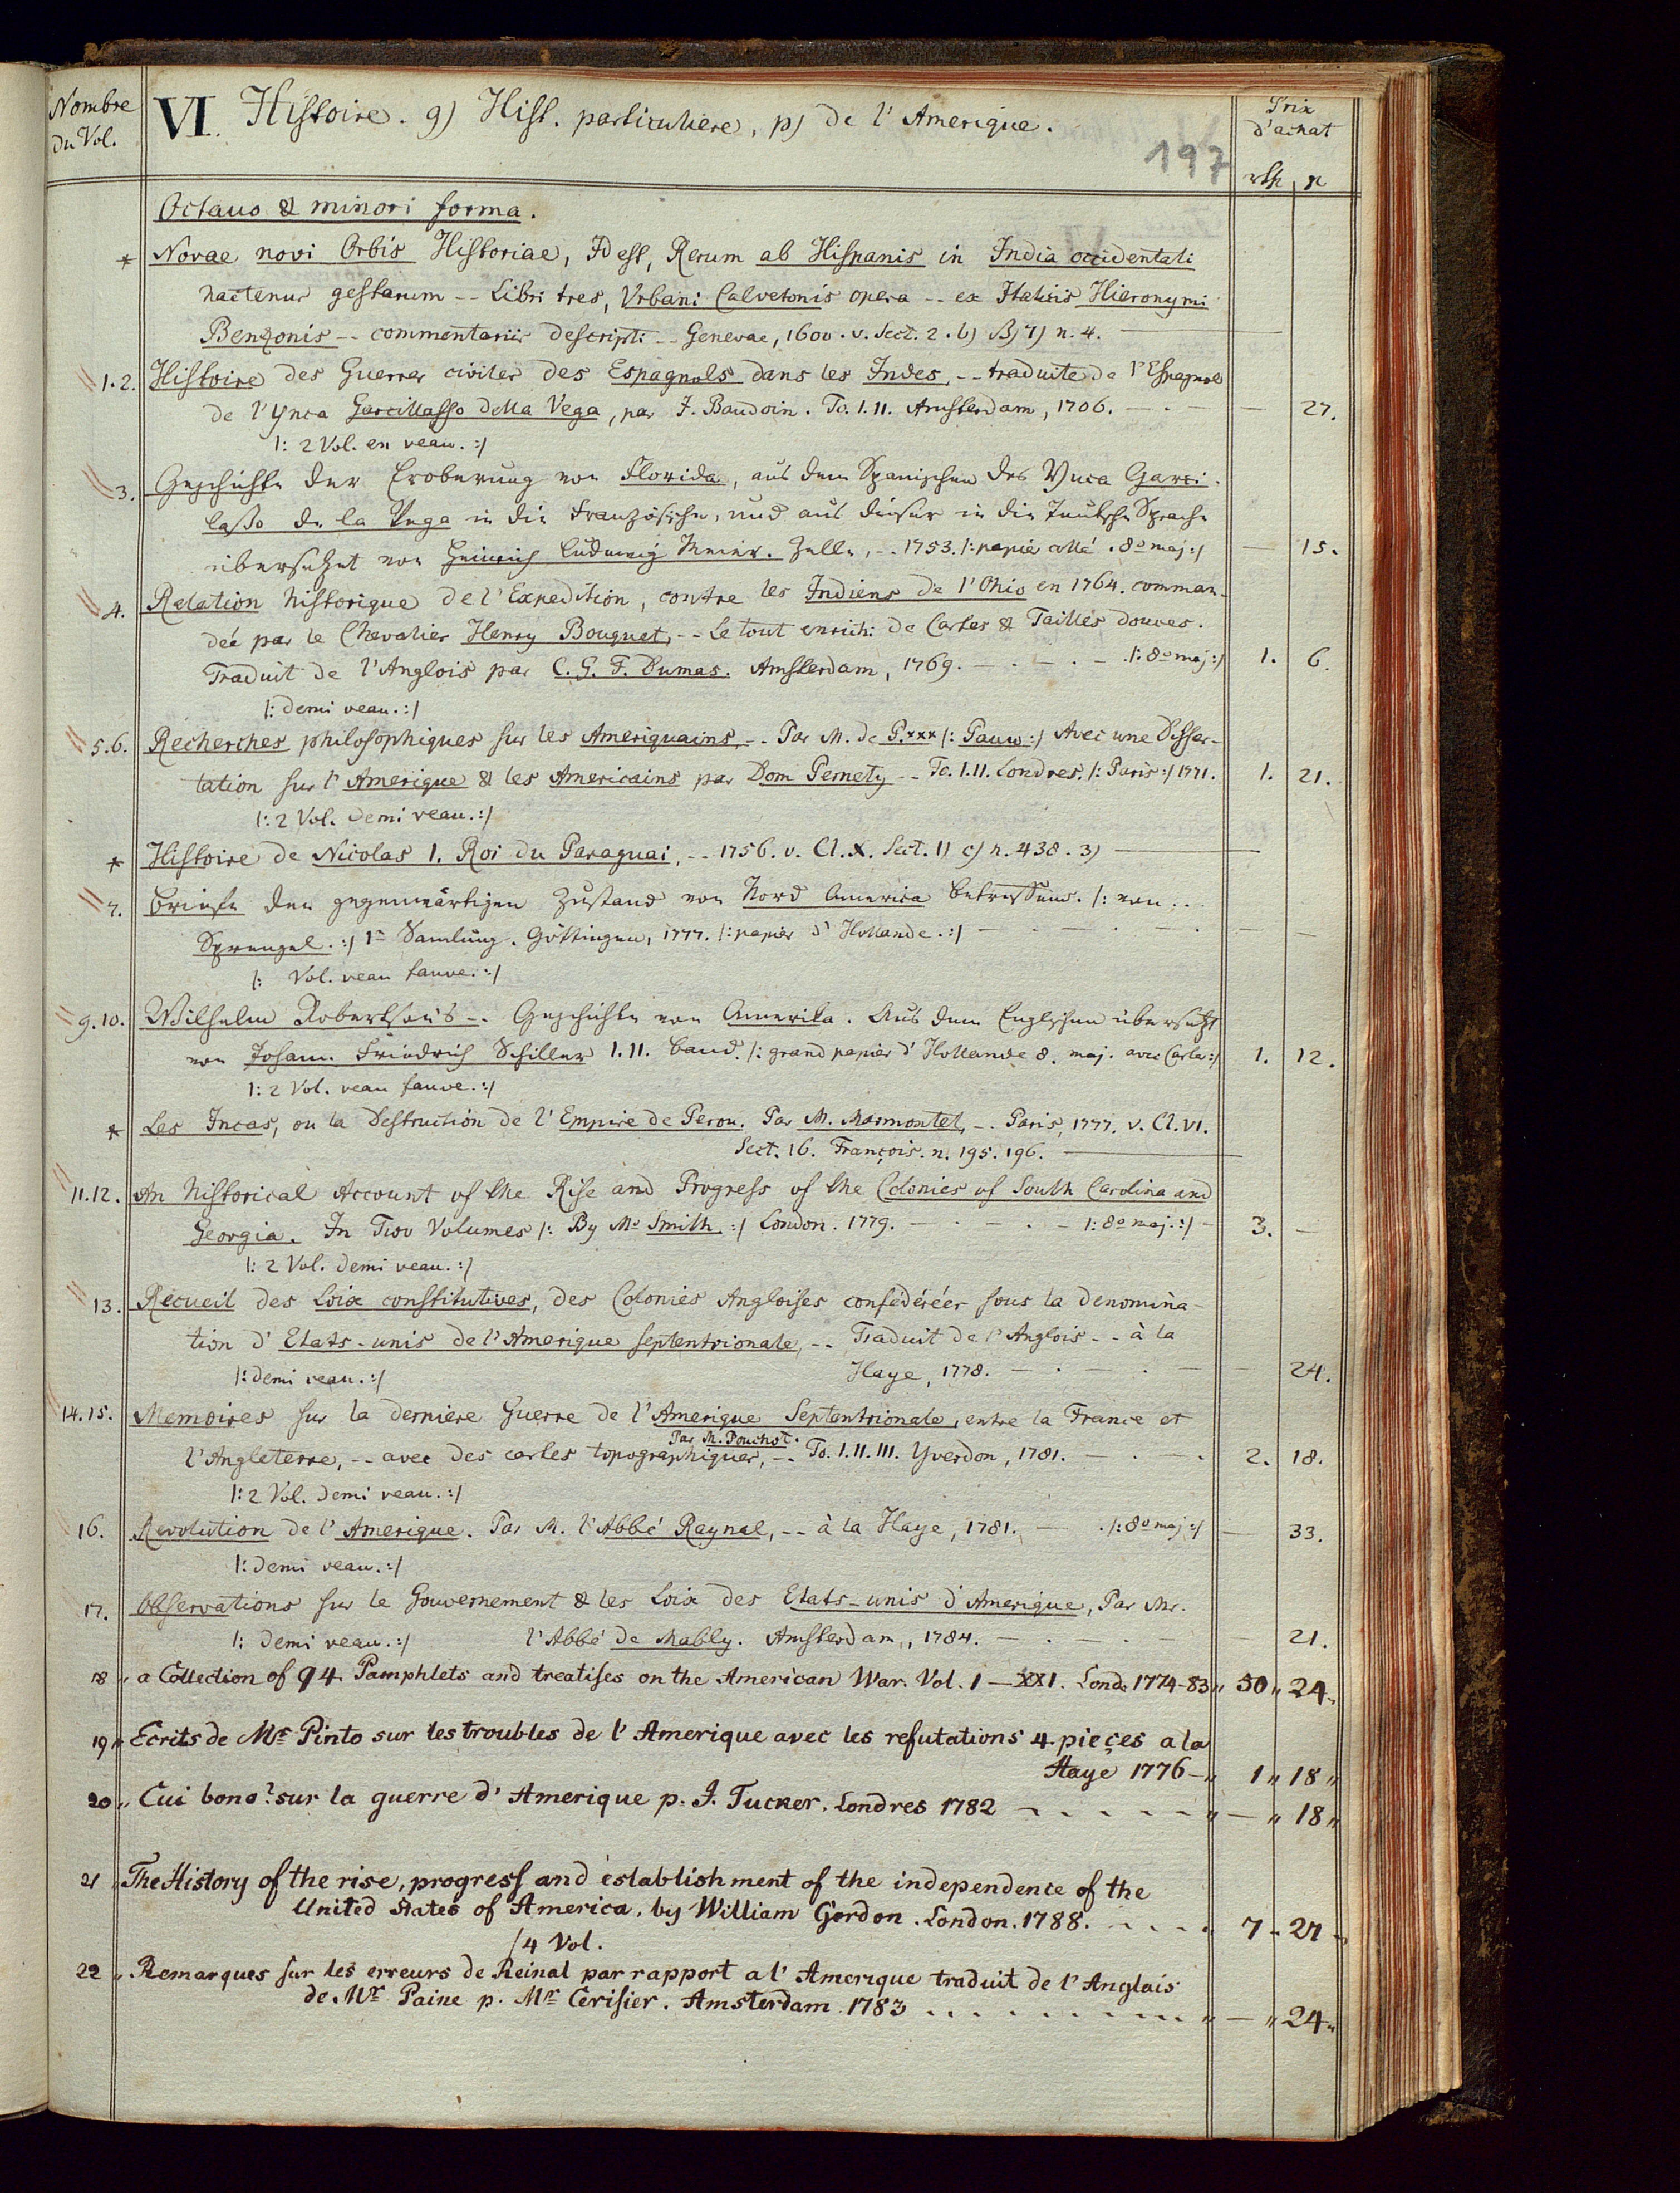 Nombre
du Vol.
VI. Histoire. g) Hist. particuliere, p) de l'Amerique.
Prix
d'achat
197
Octavo & minori forma.
* Novae novi Orbis Historiae, Id est, Rerum ab Hispanis in India occidentali
hactenus gestarum -- Libri tres, Urbani Calvetonis opera -- ex Italicis Hieronymi
Benzonis -- commentariis descripti -- Genevae, 1600. v. Sect. 2. b) n. 4.
1.2. Histoire des Guerres civiles des Espagnols dans les Indes, -- traduite de l'Espagnol
de l'Ynca Garcillasso della Vega, par J. Baudoin. To. I.II. Amsterdam, 1706. — 27.
/: 2 Vol. en veau. :/
3. Geschichte der Eroberung von Florida, aus dem Spanischen des Ynca Garci-
lasso de la Vega in die Französische, und aus dieser in die Teutsche Sprache
übersetzet von Heinrich Ludewig Meier. Zelle, -- 1753. /: papier collé. 8º maj :/ — 15.
4. Relation historique de l'Expedition, contre les Indiens de l'Ohio en 1764. comman-
deé par le Chevalier Henry Bouquet, -- Le tout enrichi de Cartes & Tailles douces.
Traduit de l'Anglois par C. G. F. Dumas. Amsterdam, 1769. — . — . — . /: 8º maj :/ 1. 6.
/: demi veau. :/
5.6. Recherches philosophiques sur les Ameriquains, -- Par M. de P.xxx /: Pauw :/ Avec une Disser-
tation sur l'Amerique & les Americains par Dom Pernety -- To. I.II. Londres. /: Paris :/ 1771. 1. 21.
/: 2 Vol. demi veau. :/
* Histoire de Nicolas I. Roi du Paraguai, -- 1756. v. Cl. X. Sect. 1) c) n. 438. 3) —
7. Briefe den gegenwärtigen Zustand von Nord America betreffend. /: von ...
Sprengel. :/ 1e Samlung. Göttingen, 1777. /: papier d'Hollande. :/ — . — . — . — —
/: Vol. veau fauve. :/
9.10. Wilhelm Robertson's -- Geschichte von Amerika. Aus dem Englischen übersetzt
von Johann Friedrich Schiller I.II. Band. /: grand papier d'Hollande 8. maj. avec Cartes :/ 1. 12.
/: 2 Vol. veau fauve. :/
* Les Incas, ou la Destruction de l'Empire de Perou. Par M. Marmontel, -- Paris, 1777. v. Cl. VI.
Sect. 16. François. n. 195. 196. —
11.12. An historical Account of the Rise and Progress of the Colonies of South Carolina and
Georgia. In Two Volumes /: By Mr Smith. :/ London. 1779. — . — . — /: 8º maj. :/ — 3. —
/: 2 Vol. demi veau. :/
13. Recueil des Loix constitutives, des Colonies Angloises confédéréés sous la denomina-
tion d'Etats-unis de l'Amerique septentrionale, -- Traduit de l'Anglois -- à la
/: demi veau. :/ Haye, 1778. — . — . — — 24.
14.15. Memoires sur la derniere Guerre de l'Amerique Septentrionale, entre la France et
Par M. Pouchot.
l'Angleterre, -- avec des cartes topographiques, -- To. I.II.III. Yverdon, 1781. — . — . 2. 18.
/: 2 Vol. demi veau. :/
16. Revolution de l'Amerique. Par M. l'Abbé Raynal, -- à la Haye, 1781. — . /: 8º maj :/ — 33.
/: demi veau. :/
17. Observations sur le Gouvernement & les Loix des Etats-unis d'Amerique, Par Mr.
/: demi veau. :/ l'Abbé de Mably. Amsterdam, 1784. — . — . — — 21.
18 " a Collection of 94 Pamphlets and treatises on the American War. Vol. I — XXI. Lond. 1774-83 " 50 " 24 "
19 " Ecrits de Mr Pinto sur les troubles de l'Amerique avec les refutations 4 pieçes a la
Haye 1776 — " 1 " 18 "
20 " Cui bono? sur la guerre d'Amerique p. J. Tucker. Londres 1782 - - - - - " — " 18 "
21 " The History of the rise, progress and establishment of the independence of the
United States of America, by William Gordon. London. 1788. - - - - 7 - 27 -
/4 Vol.
22 " Remarques sur les erreurs de Reinal par rapport a l'Amerique traduit de l'Anglais
de Mr Paine p. Mr Cerisier. Amsterdam 1783 . . . . . . . . . " — " 24 "